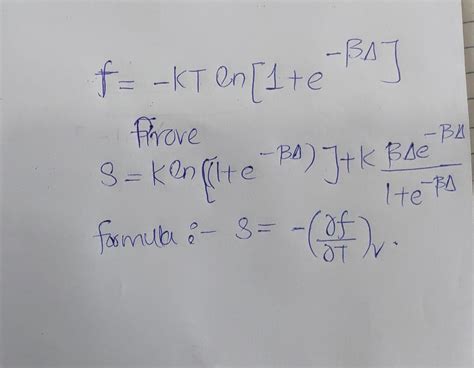 f = -KT ln[1+e^{-βΔ}]
Prove
S = K ln[(1+e^{-βΔ})]+K \frac{βΔe^{-βΔ}}{1+e^{-βΔ}}
formula :- S = -(\frac{∂f}{∂T})_v.